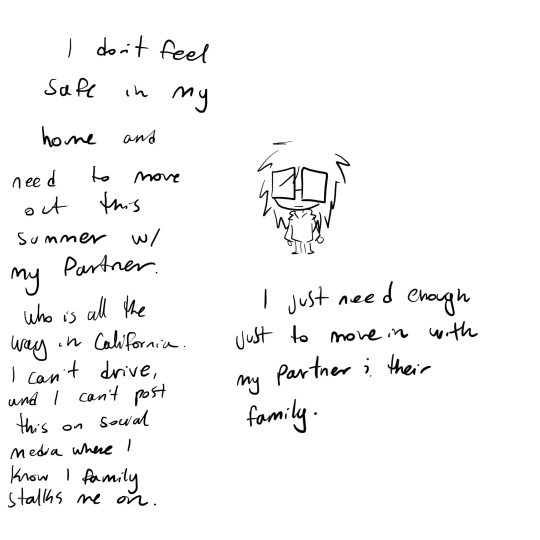 I don't feel
safe in my
home and
need to move
out this
summer w/
my Partner.
who is all the
way in California.
I can't drive,
and I can't post
this on social
media where I
know I family
stalks me on.
I just need enough
just to move in with
my partner & their
family.